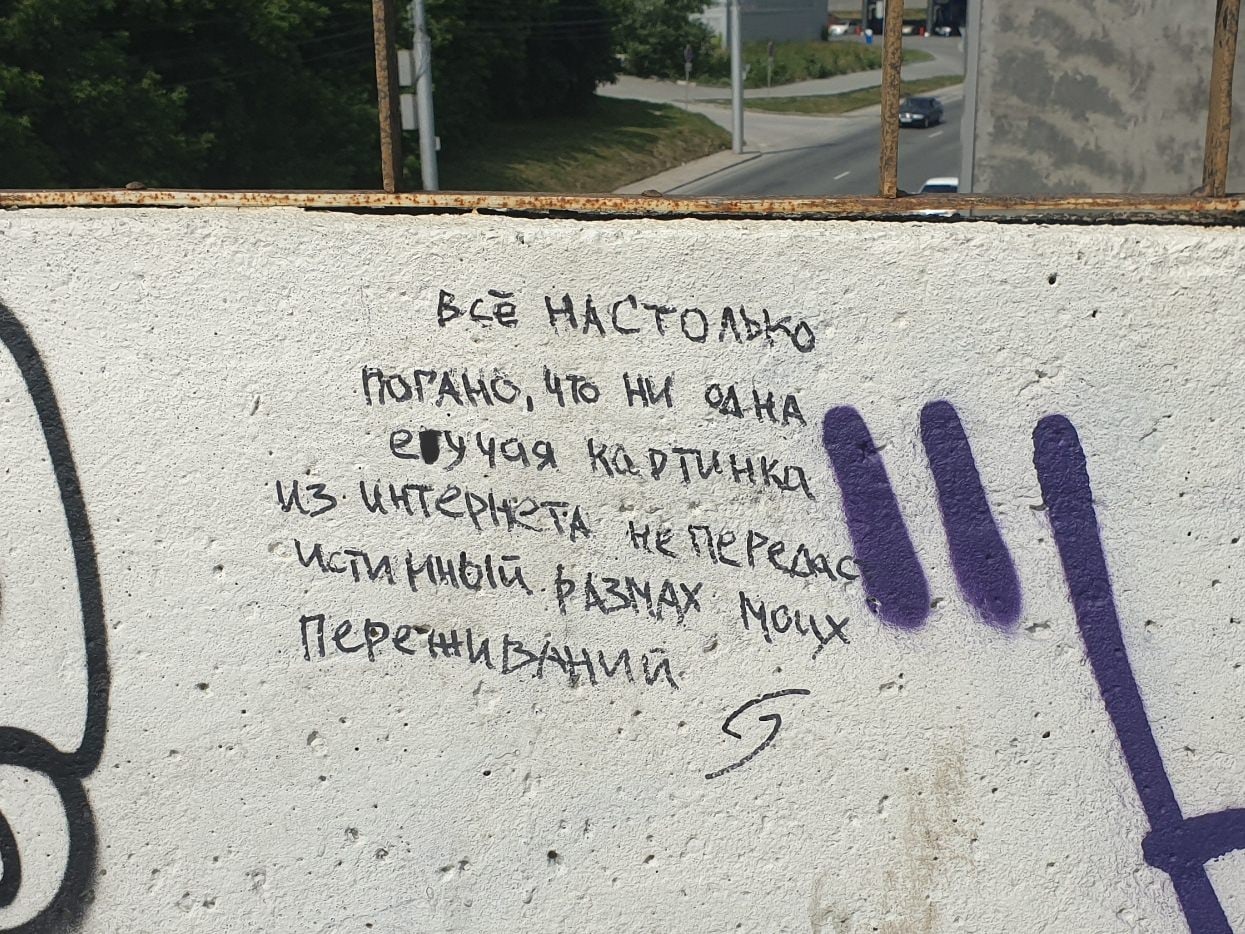 всё настолько
погано, что ни одна
ебучая картинка
из интернета не передас
истинный размах моих
переживаний.